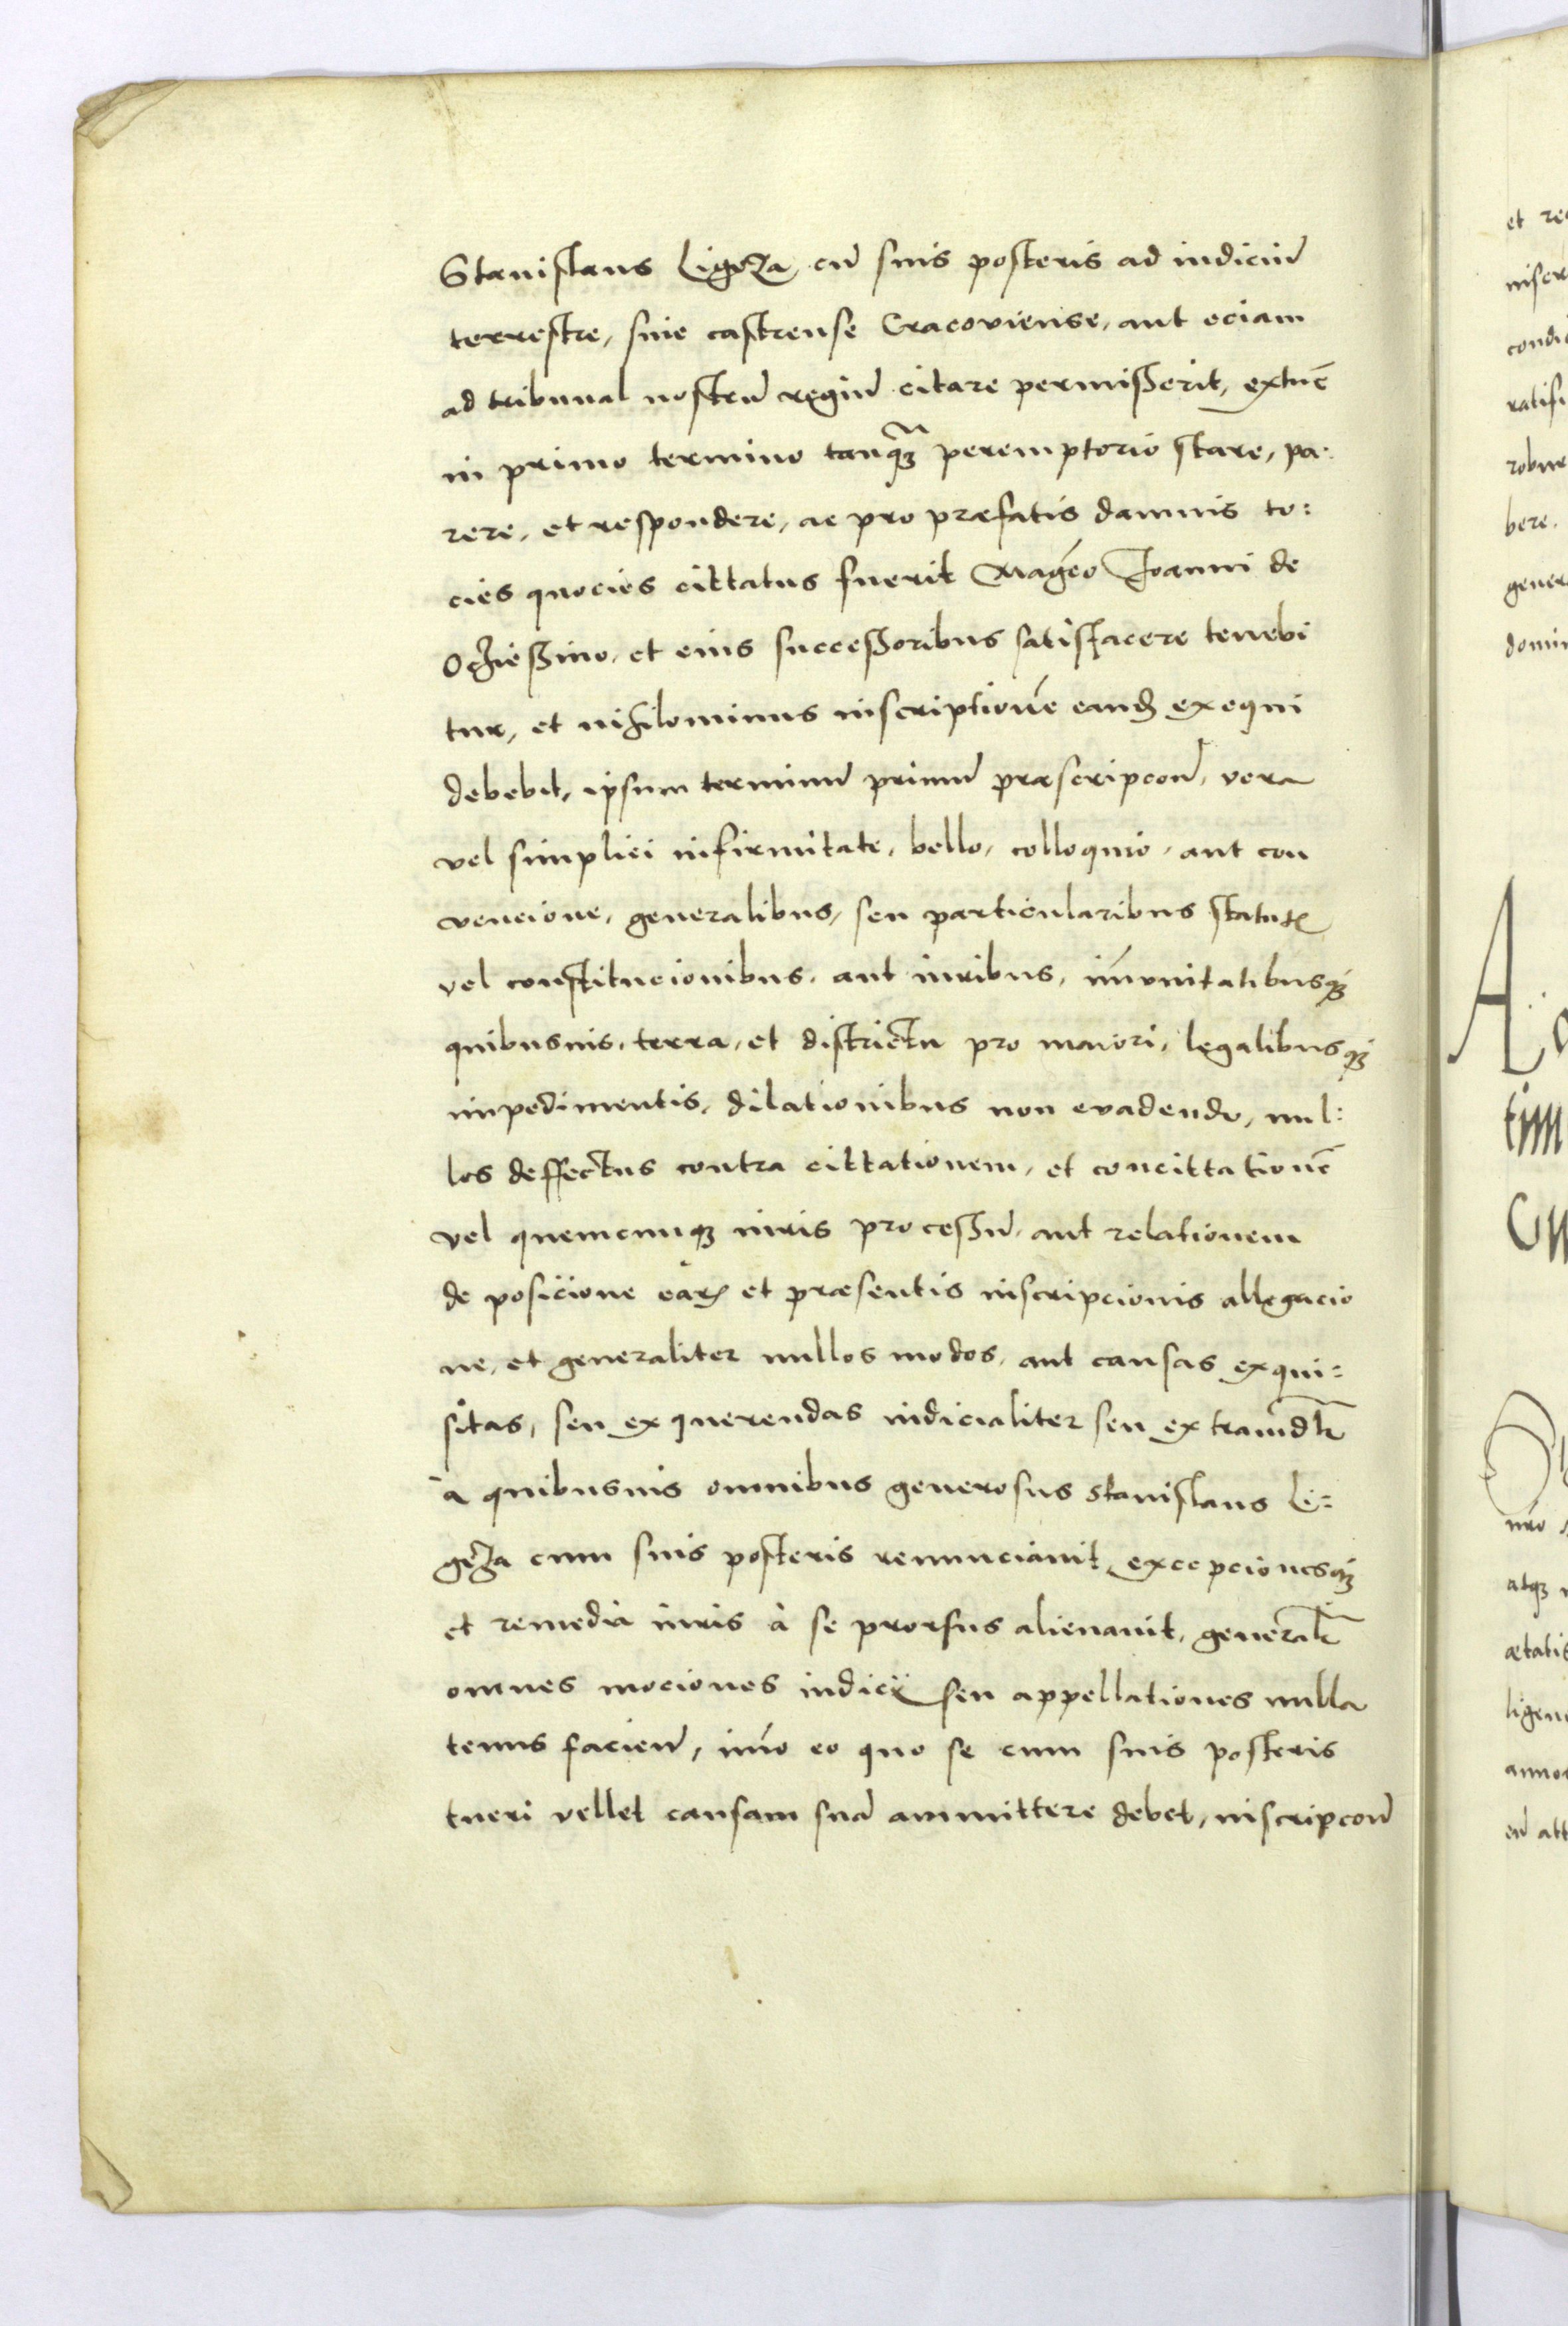 Stanislaus Ligęza, cū suis posteris ad iudiciū
terrestre, siue castrense Cracoviense, aut eciam
ad tribunal nostrū regiū citare permisserit, extūc
in primo termino tanq̃ȝ peremptorio stare, pa:
rere, et respondere, ac pro præfatis damnis to:
cies quocies cittatus fuerit Magco Joanni de
Oczießino, et eius successoribus satisfacere tenebi
tur, et nihilominus inscriptionē eandē exequi
debebit, ipsum terminū primū præscripcoū, vera
vel simplici infirmitate, bello, colloquio, aut con
vencione, generalibus, seu particularibus statutꝭ
vel constitucionibus, aut iuribus, im̄unitatibusqȝ
quibusuis, terra, et districtu pro maiori, legalibusqȝ
impedimentis, dilationibus non evadendo, nul:
los deffectus contra cittationem, et concittationē
vel quemcunqȝ iuris processū, aut relationem
de posicione earꝝ et præsentis inscripcionis allegacio
ne, et generaliter nullos modos, aut causas exqui:
sitas, seu exquerendas iudicialiter seu extraiudlr̄
à quibusuis omnibus generosus Stanislaus Li:
gęza cum suis posteris renunciauit, excepcionesqȝ
et remedia iuris à se prorsus alienauit, generalr̄
omnes mociones iudicij seu appellationes nulla
tenus facieñ, imo eo quo se cum suis posteris
tueri vellet causam suā ammittere debet, inscripcoū
et
A